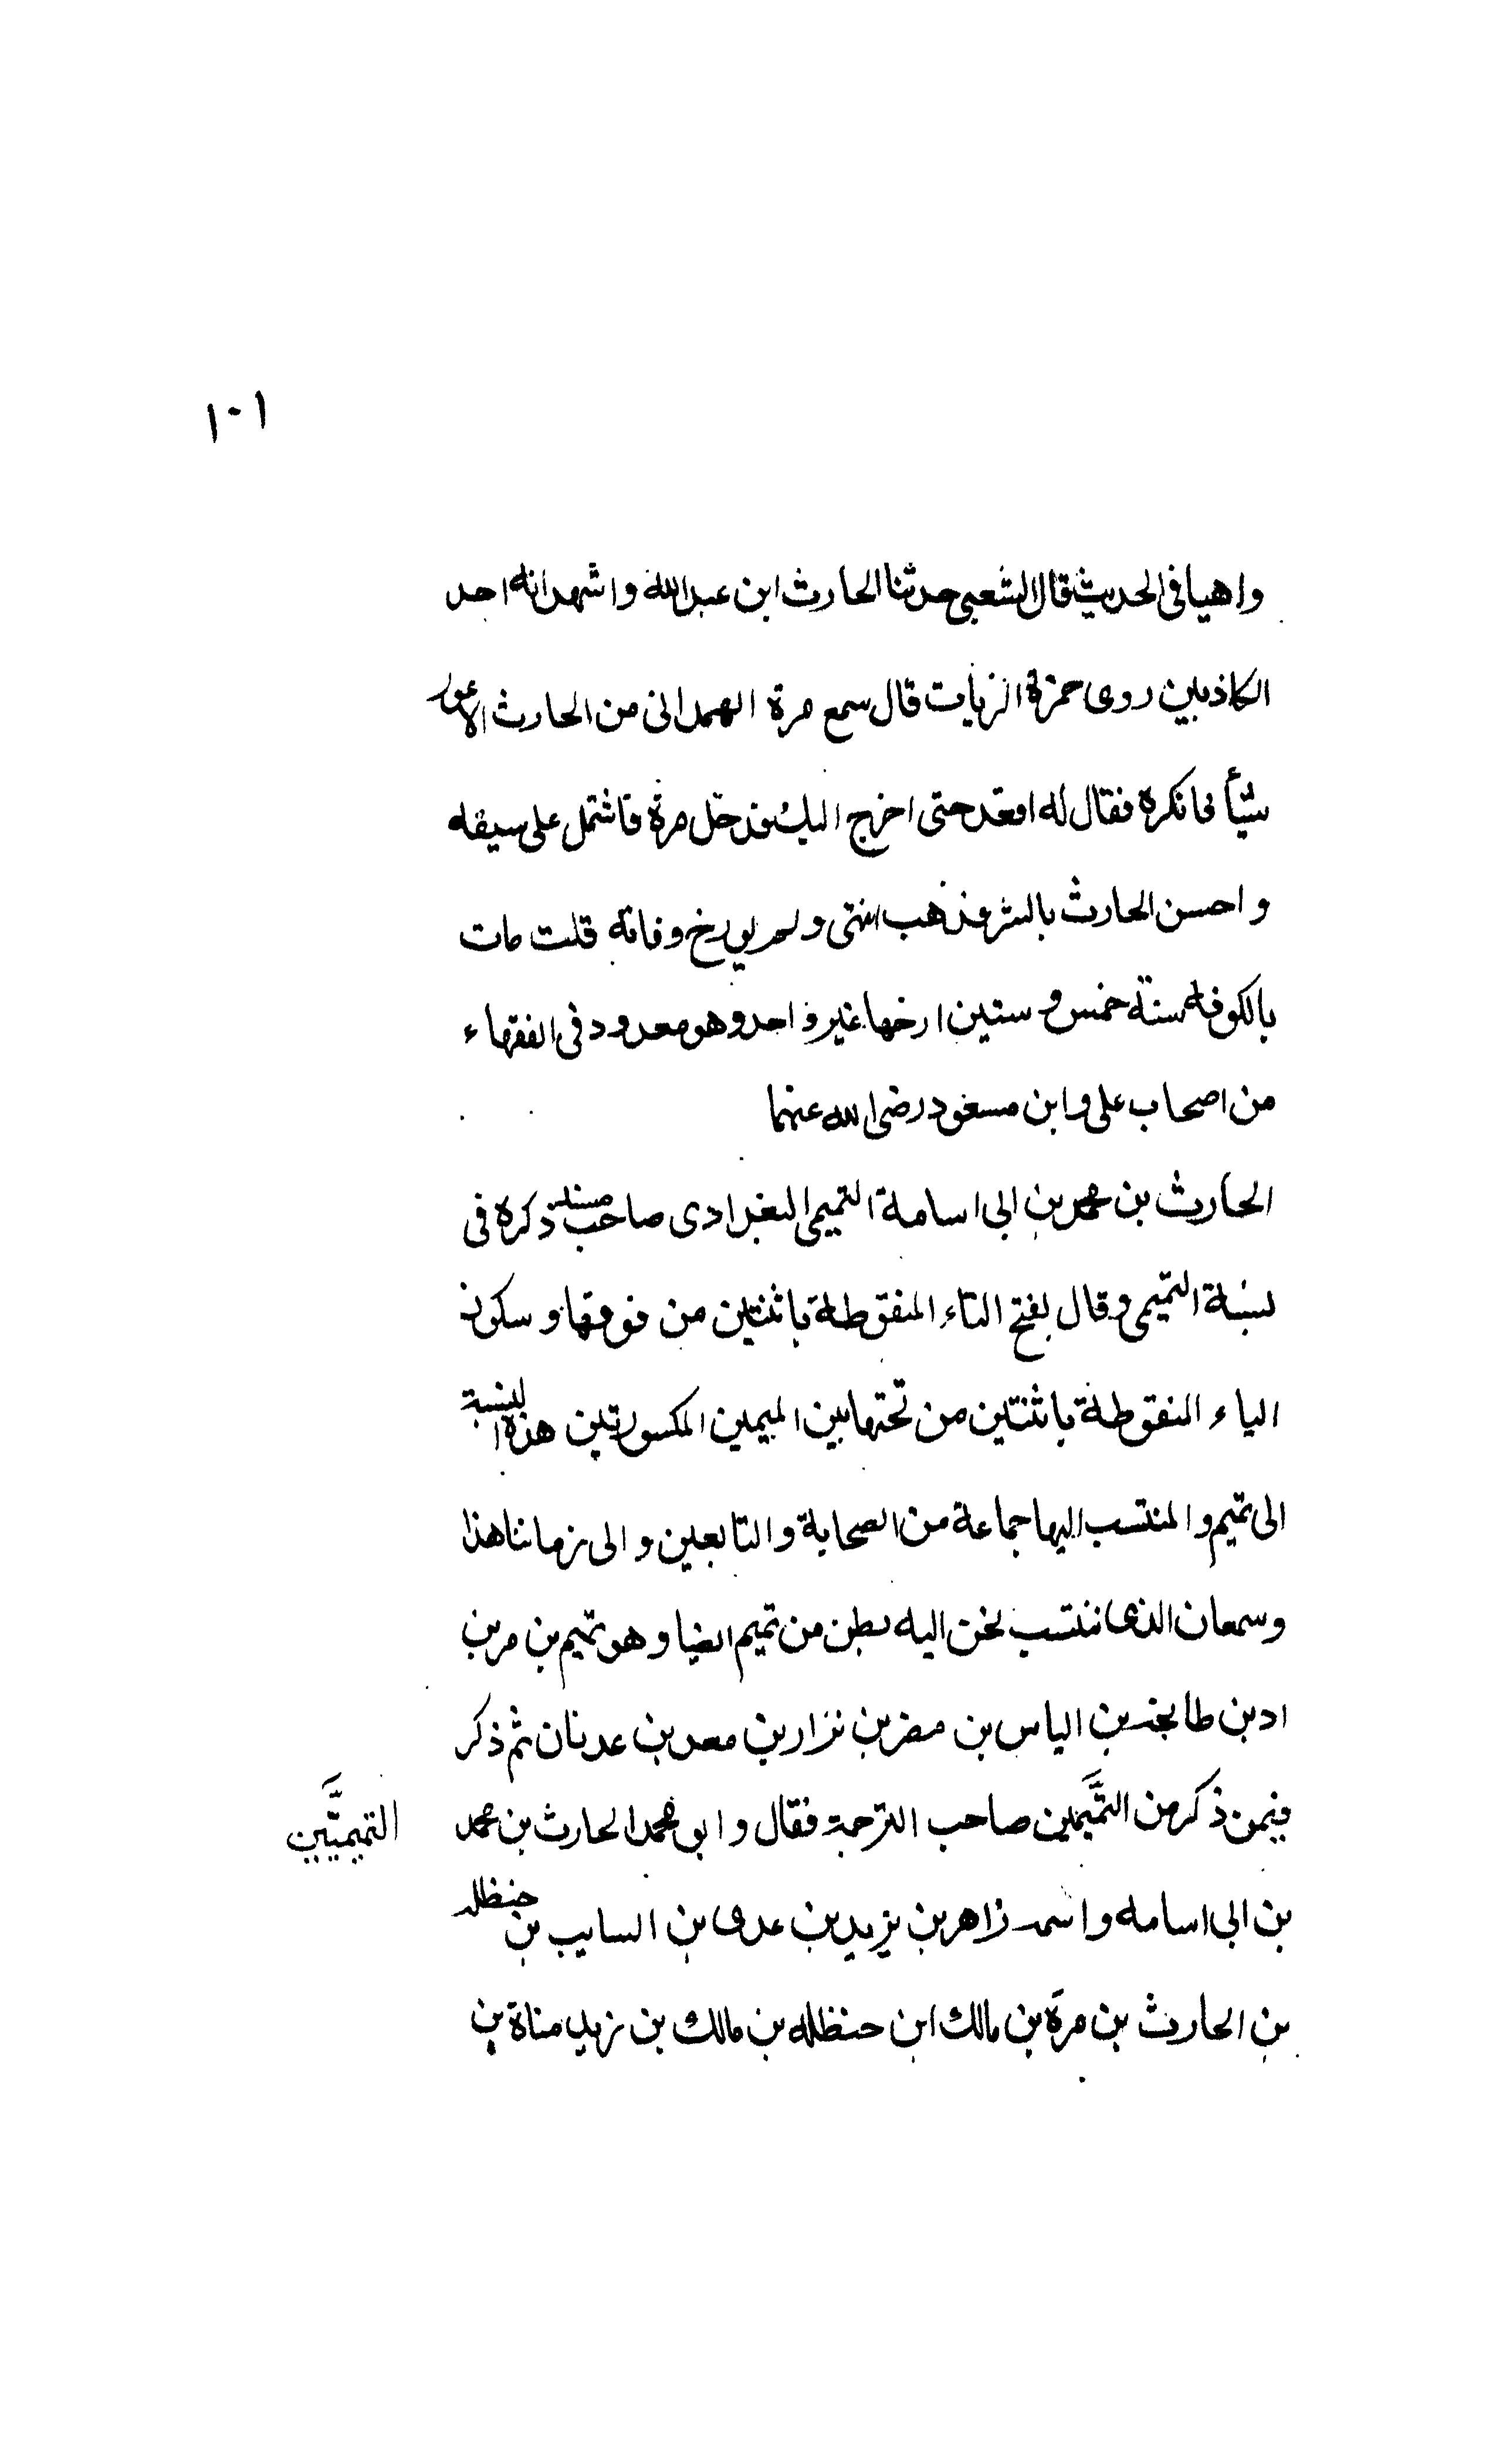 ١٠١
واهيا فى الحديث قال الشعبى حدثنا الحارث ابن عبدالله واشهد انه احد
الكاذبين روى حمزة الزيات قال سمع مرة الهمدانى من الحارث الاعور
شيئأ فانكره فقال له اقعد حتى اخرج اليك فدخل مرة فاشتمل على سيفه
واحسن الحارث بالشر فذهب انتهى ولم يورخ وفاته قلت مات
بالكوفة سنة خمس وستين ارخها غير واحد وهو معدود فى الفقهاء
من اصحاب على وابن مسعود رضى الله عنهما
الحارث بن محمد بن ابى اسامة التميمى البغدادى صاحب مسند ذكره فى
نسبة التميمى وقال بفتح التاء المنقوطة باثنتين من فوقها وسكون
الياء المنقوطة باثنتين من تحتها بين الميمين المكسورتين هذه النسبة
الى تميم والمنتسب اليها جماعة من الصحابة والتابعين والى زماننا هذا
وسمعان الذى ننتسب نحن اليه بطن من تميم ايضا وهو تميم بن مر بن
اد بن طابخة بن الياس بن مضر بن نزار بن معد بن عدنان ثم ذكر
فيمن ذكر من التَّميمين صاحب الترجمة فقال وابو محمد الحارث بن محمد
التميميَّين
بن ابى اسامه واسمه زاهر بن يزيد بن عدى بن السايب بن حنظله
بن الحارث بن مرة بن مالك ابن حنظله بن مالك بن زيد مناة بن